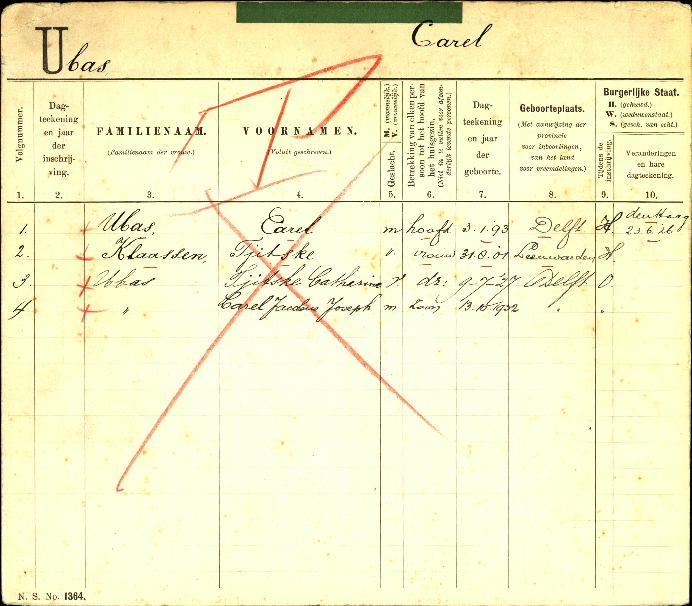 Ubas
Carel
Volgnummer.
Dag-
teekening
en jaar
der
inschrij-
ving.
FAMILIENAAM.
(Familienaam der vrouw.)
VOORNAMEN.
(Voluit geschreven.)
Geslacht, M. (mannelijk.) V. (vrouwelijk.)
Betrekking van elken per-
soon tot het hoofd van
het huisgezin.
(Niet in te vullen voor afzon-
derlijk levende personen.)
Dag-
teekening
en jaar
der
geboorte.
Geboorteplaats.
(Met aanwijzing der
provincie
voor inboorlingen,
van het land
voor vreemdelingen.)
Burgerlijke Staat.
H. (gehuwd.)
W. (weduwenstaat.)
S. (gesch. van echt.)
Tijdens de
inschrijving.
Veranderingen
en hare
dagteekening.
1. 2. 3. 4. 5. 6. 7. 8. 9. 10.
1. Ubas, Carel m hoofd 3.1.93 Delft H. den Haag 23.6.26
2. Klaassen, Tjitske v. vrouw 31.8.'01 Leeuwarden H
3 Ubas Tjitske Catharina V dr: 9-7-'27 Delft O
4 " Carel Joseph m zoon 1932 " "
N. S. No. 1364.